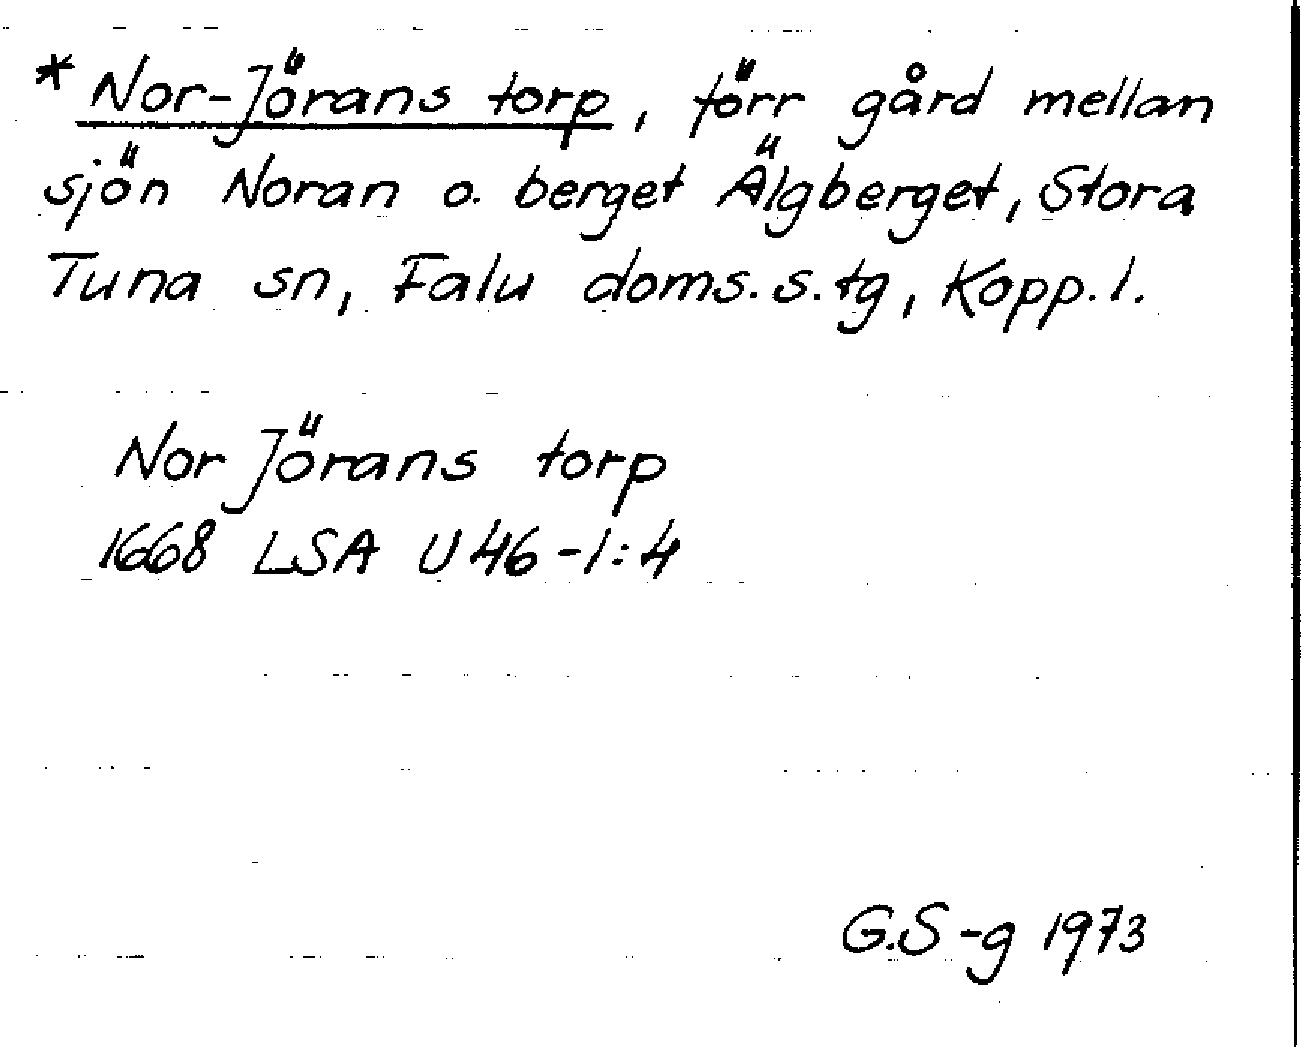 * Nor-Jörans torp, förr gård mellan
sjön Noran o. berget Älgberget, Stora
Tuna sn, Falu doms.s.tg, Kopp.l.
Nor Jörans torp
1668 LSA U 46-1:4
G.S-g 1973